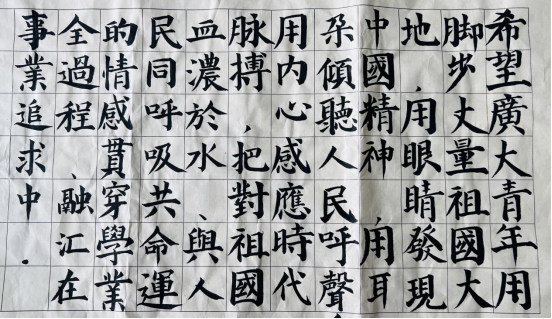 希望廣大青年用
脚步丈量祖國大
地，用眼睛發現
中國精神，用耳
朵傾聽人民呼聲，
用内心感應時代
脉搏，把對祖國
血濃於水、與人
民同呼吸共命運
的情感貫穿學業
全過程、融江在
事業追求中。